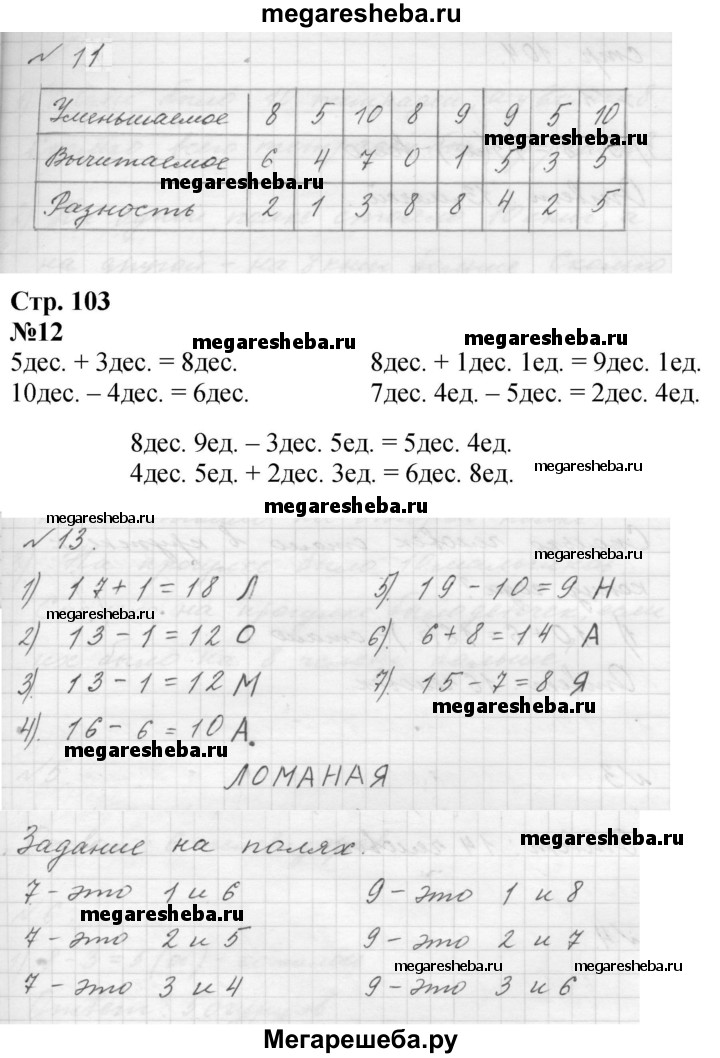 megaresheba.ru
№ 11
Уменьшаемое 8 5 10 8 9 9 5 10
megaresheba.ru
Вычитаемое 6 4 7 0 1 5 3 5
megaresheba.ru
Разность 2 1 3 8 8 4 2 5
Стр. 103
№12
megaresheba.ru megaresheba.ru
5дес. + 3дес. = 8дес. 8дес. + 1дес. 1ед. = 9дес. 1ед.
10дес. – 4дес. = 6дес. 7дес. 4ед. – 5дес. = 2дес. 4ед.
8дес. 9ед. – 3дес. 5ед. = 5дес. 4ед.
4дес. 5ед. + 2дес. 3ед. = 6дес. 8ед. megaresheba.ru
megaresheba.ru
megaresheba.ru
№ 13.
megaresheba.ru
1) 17 + 1 = 18 Л 5) 19 - 10 = 9 Н
megaresheba.ru
2) 13 - 1 = 12 О 6) 6 + 8 = 14 А
3) 13 - 1 = 12 М 7) 15 - 7 = 8 Я
megaresheba.ru
4) 16 - 6 = 10 А.
megaresheba.ru
ЛОМАНАЯ
Задание на полях. megaresheba.ru
7 - это 1 и 6 9 - это 1 и 8
megaresheba.ru
7 - это 2 и 5 9 - это 2 и 7
megaresheba.ru megaresheba.ru
7 - это 3 и 4 9 - это 3 и 6
Мегарешеба.ру